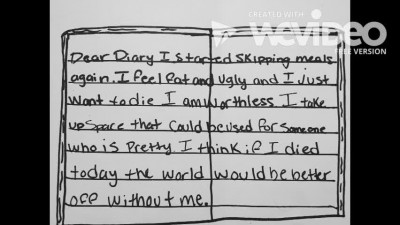 CREATED WITH
WeVideo
FREE VERSION
Dear Diary I started Skipping meals
again. I feel fat and ugly and I Just
want to die I am worthless I take
up space that could be used for someone
who is pretty I think if I died
today the world would be better
off without me.